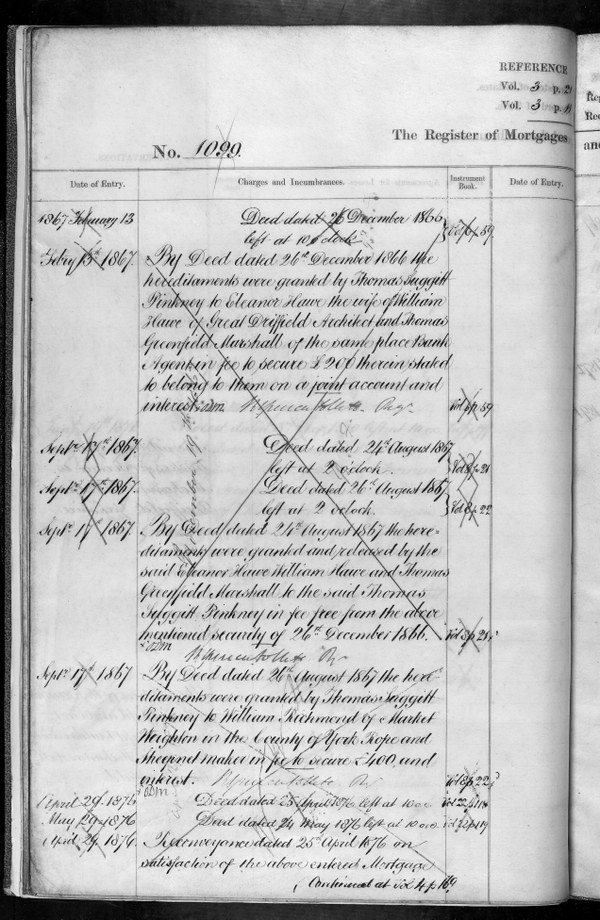 REFERENCE
Vol. 3 p. 21
Vol. 3 p.
The Register of Mortgages
No. 1099.
Date of Entry.
Charges and Incumbrances.
Instrument Book.
Date of Entry.
1867 February 13
Deed dated 26 December 1866
left at 10 o'clock
Vol 6 p. 59
Febry 13th 1867.
By Deed dated 26th December 1866 the
hereditaments were granted by Thomas Suggitt
Pinkney to Eleanor Hawe the wife of William
Hawe of Great Driffield Architect and Thomas
Greenfield Marshall of the same place Bank
Agent in fee to secure £200 therein stated
to belong to them on a joint account and
interest.
Reg.
Vol 6 p 59
Septr. 17th 1867.
Deed dated 24th August 1867
left at 2 o'clock.
Vol 8 p. 21
Septr. 17th 1867.
Deed dated 26th August 1867
left at 2 o'clock.
Vol 8 p. 22
Septr. 17th 1867.
By Deed dated 24th August 1867 the here-
ditaments were granted and released by the
said Eleanor Hawe William Hawe and Thomas
Greenfield Marshall to the said Thomas
Suggitt Pinkney in fee free from the above
mentioned security of 26th December 1866.
Vol 8 p. 21
Septr. 17th 1867
By Deed dated 26th August 1867 the here-
ditaments were granted by Thomas Suggitt
Pinkney to William Richmond of Market
Weighton in the County of York Rope and
Sheepnet maker in fee to secure £400 and
interest.
Vol 8 p 22
April 29th 1876
Deed dated 25 April 1876 left at 10 o'c
May 29th 1876
Deed dated 24 May 1876 left at 10 o'c
April 29 1876.
Reconveyance dated 25th April 1876 on
satisfaction of the above entered Mortgage
Continued at Vol 4 p 169